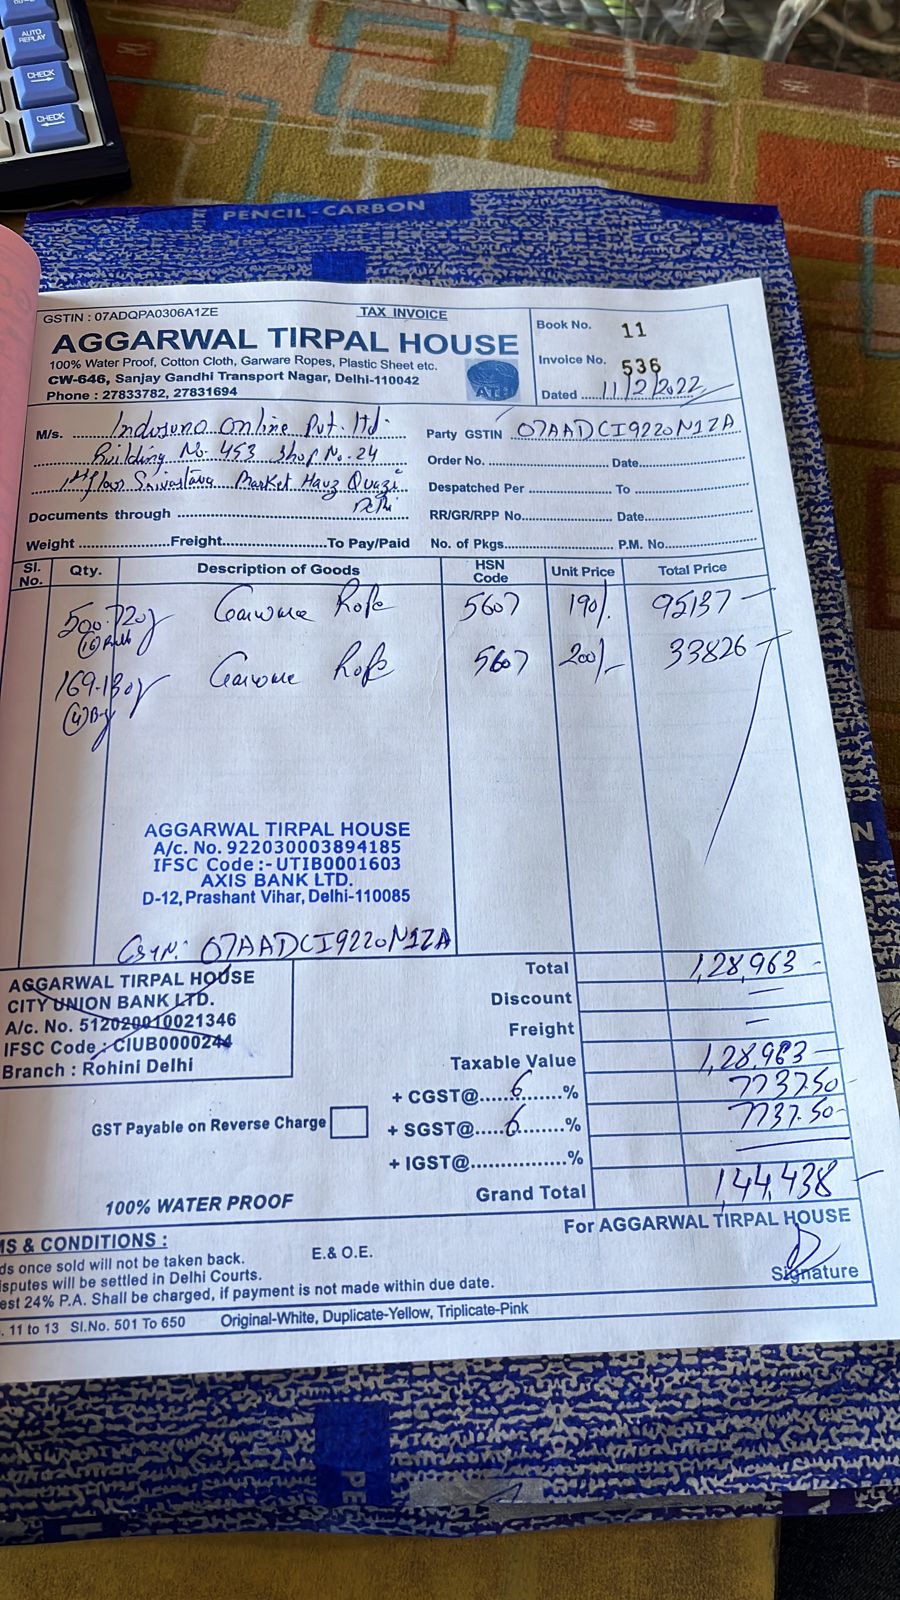 AUTO REPLAY
CHECK
CHECK
PENCIL-CARBON
GSTIN : 07ADQPA0306A1ZE
TAX INVOICE
AGGARWAL TIRPAL HOUSE
100% Water Proof, Cotton Cloth, Garware Ropes, Plastic Sheet etc.
CW-646, Sanjay Gandhi Transport Nagar, Delhi-110042
Phone : 27833782, 27831694
ATH
Book No. 11
Invoice No. 536
Dated 11/2/2022
M/s. Indosuno Online Pvt. ltd.
Building No. 453 Shop No. 24
1st floor Srivastava Market Hauz Quazi
Delhi
Party GSTIN 07AADCI9220N1ZA
Order No. Date
Despatched Per To
Documents through RR/GR/RPP No. Date
Weight Freight To Pay/Paid No. of Pkgs. P.M. No.
Sl. No. Qty. Description of Goods HSN Code Unit Price Total Price
500.720g Garware Rope 5607 190/- 95137
169.130g Garware Rope 5607 200/- 33826
AGGARWAL TIRPAL HOUSE
A/c. No. 922030003894185
IFSC Code :- UTIB0001603
AXIS BANK LTD.
D-12, Prashant Vihar, Delhi-110085
GSTN: 07AADCI9220N1ZA
AGGARWAL TIRPAL HOUSE
CITY UNION BANK LTD.
A/c. No. 512020010021346
IFSC Code : CIUB0000244
Branch : Rohini Delhi
Total 1,28,963
Discount —
Freight —
Taxable Value 1,28,963
+ CGST@ 6 % 7737.50
+ SGST@ 6 % 7737.50
+ IGST@ %
Grand Total 1,44,438
GST Payable on Reverse Charge
100% WATER PROOF
For AGGARWAL TIRPAL HOUSE
Signature
MS & CONDITIONS :
ds once sold will not be taken back.
isputes will be settled in Delhi Courts.
est 24% P.A. Shall be charged, if payment is not made within due date.
E.& O.E.
. 11 to 13 Sl.No. 501 To 650 Original-White, Duplicate-Yellow, Triplicate-Pink